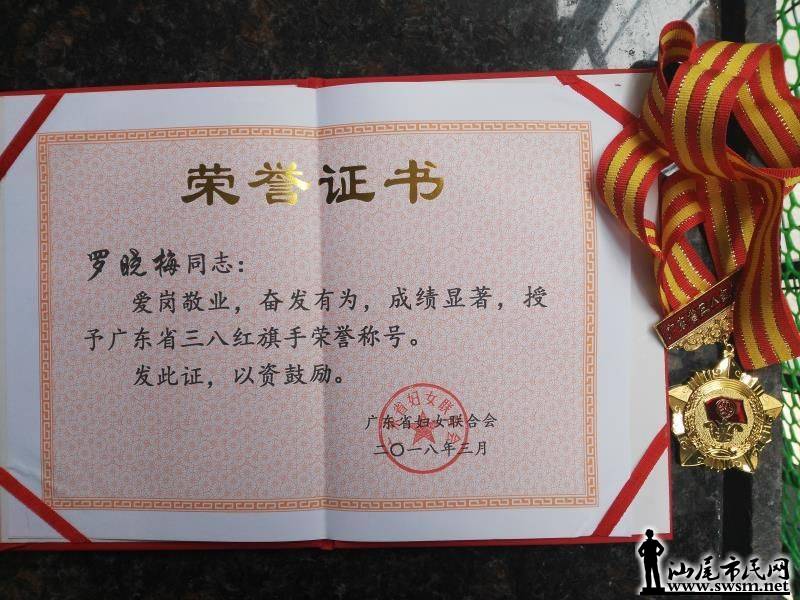 荣誉证书
罗晓梅同志：
爱岗敬业，奋发有为，成绩显著，授
予广东省三八红旗手荣誉称号。
发此证，以资鼓励。
广东省妇女联合会
二〇一八年三月
广东省妇女联合会
广东省三八红
汕尾市民网
www.swsm.net